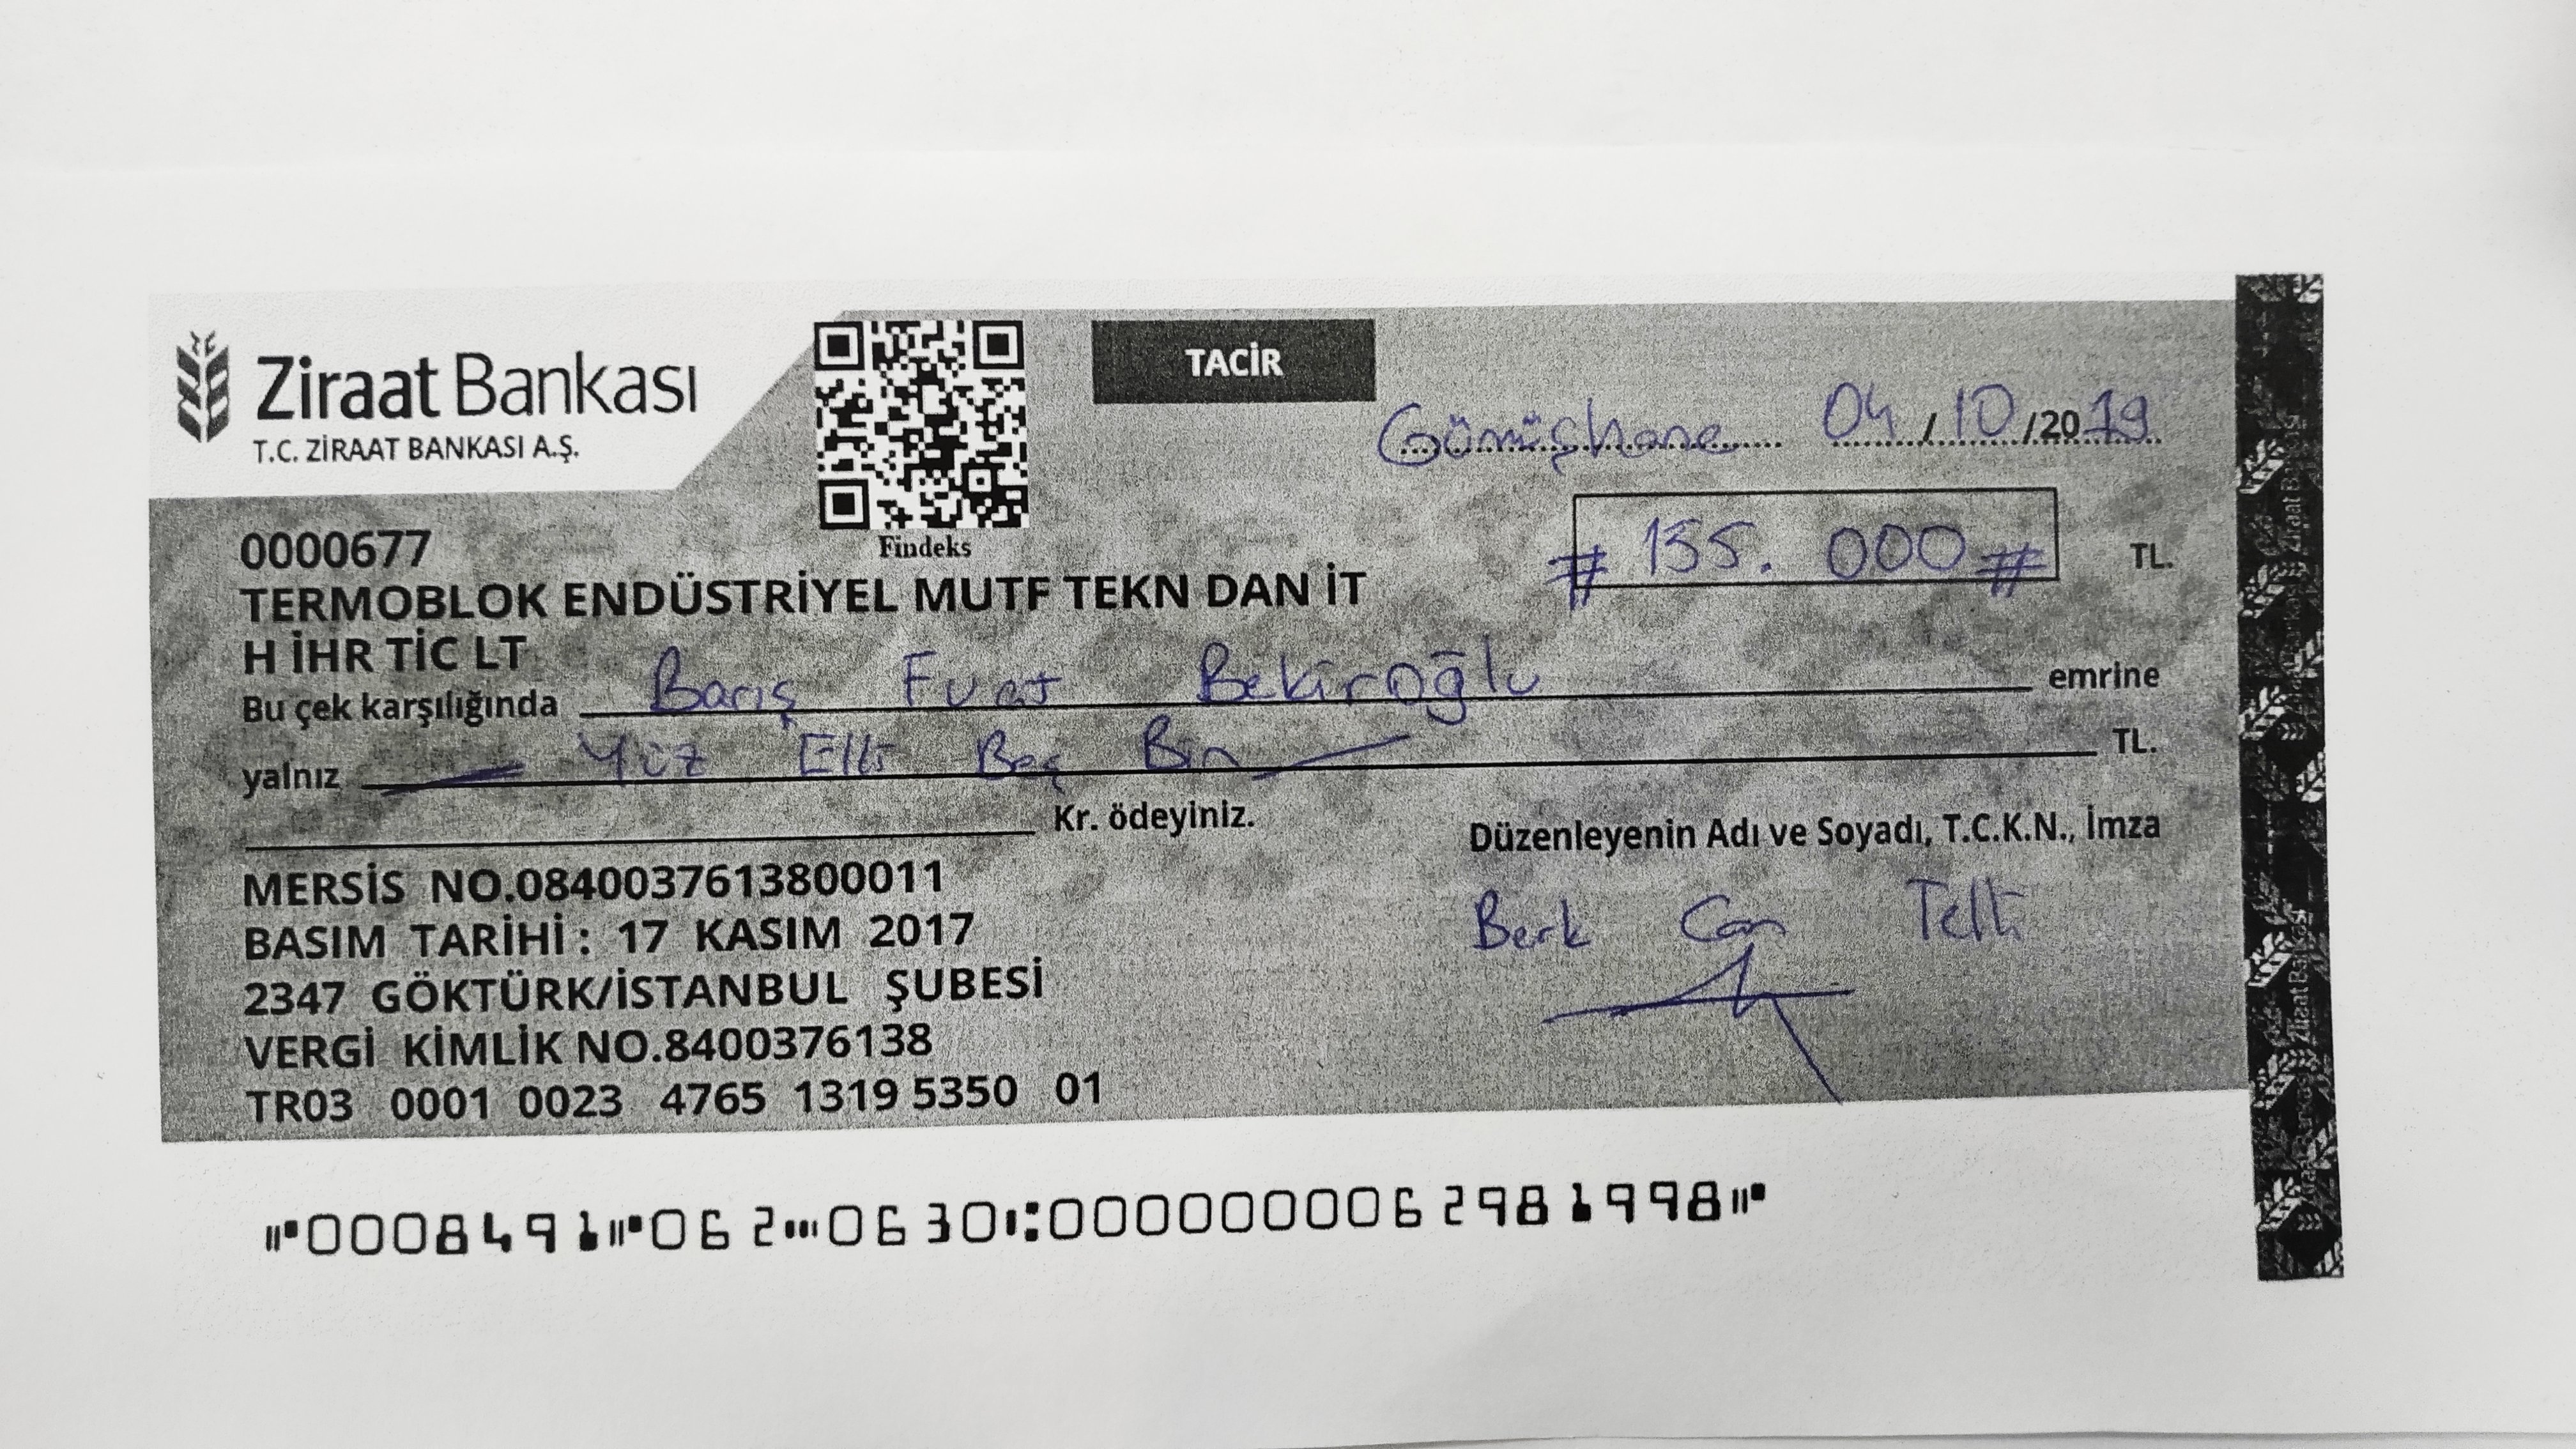 Ziraat Bankası
T.C. ZİRAAT BANKASI A.Ş.
Findeks
TACİR
Gümüşhane 04/10/2019
# 155.000 # TL.
0000677
TERMOBLOK ENDÜSTRİYEL MUTF TEKN DAN İT
H İHR TİC LT
Bu çek karşılığında Barış Fuat Bekiroğlu emrine
yalnız Yüz Elli Beş Bin TL.
Kr. ödeyiniz.
Düzenleyenin Adı ve Soyadı, T.C.K.N., İmza
Berk Can Telli
MERSİS NO.0840037613800011
BASIM TARİHİ : 17 KASIM 2017
2347 GÖKTÜRK/İSTANBUL ŞUBESİ
VERGİ KİMLİK NO.8400376138
TR03 0001 0023 4765 1319 5350 01
⑈0008491⑈062⑉0630⑆0000000062981998⑈
Ziraat Bankası